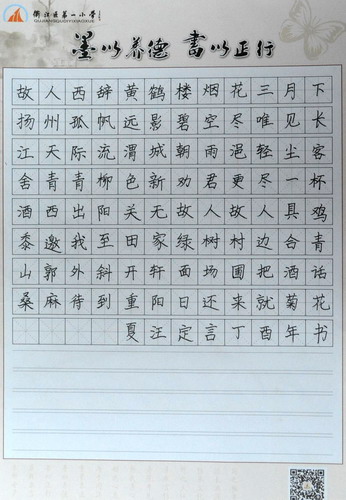 衢江区第一小学
QUJIANGQUDIYIXIAOXUE
墨以养德 書以正行
故人西辞黄鹤楼烟花三月下
扬州孤帆远影碧空尽唯见长
江天际流渭城朝雨浥轻尘客
舍青青柳色新劝君更尽一杯
酒西出阳关无故人故人具鸡
黍邀我至田家绿树村边合青
山郭外斜开轩面场圃把酒话
桑麻待到重阳日还来就菊花
夏汪定言丁酉年书